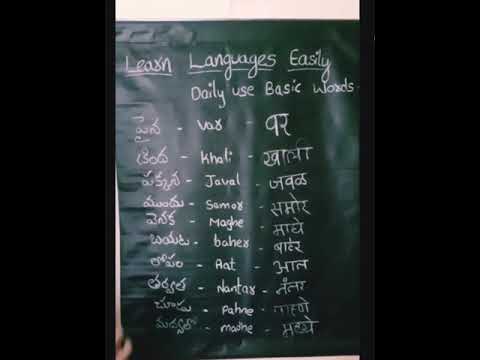 Learn Languages Easily
Daily use Basic Words
పైన - Var - वर
కింద - khali - खाली
పక్కన - Javal - जवळ
ముందు - Samor - समोर
వెనక - Maghe - माघे
బయట - baher - बाहेर
లోపల - Aat - आत
తర్వాత - Nantar - नंतर
చూడు - Pahne - पाहणे
మధ్యలో - madhe - मध्ये